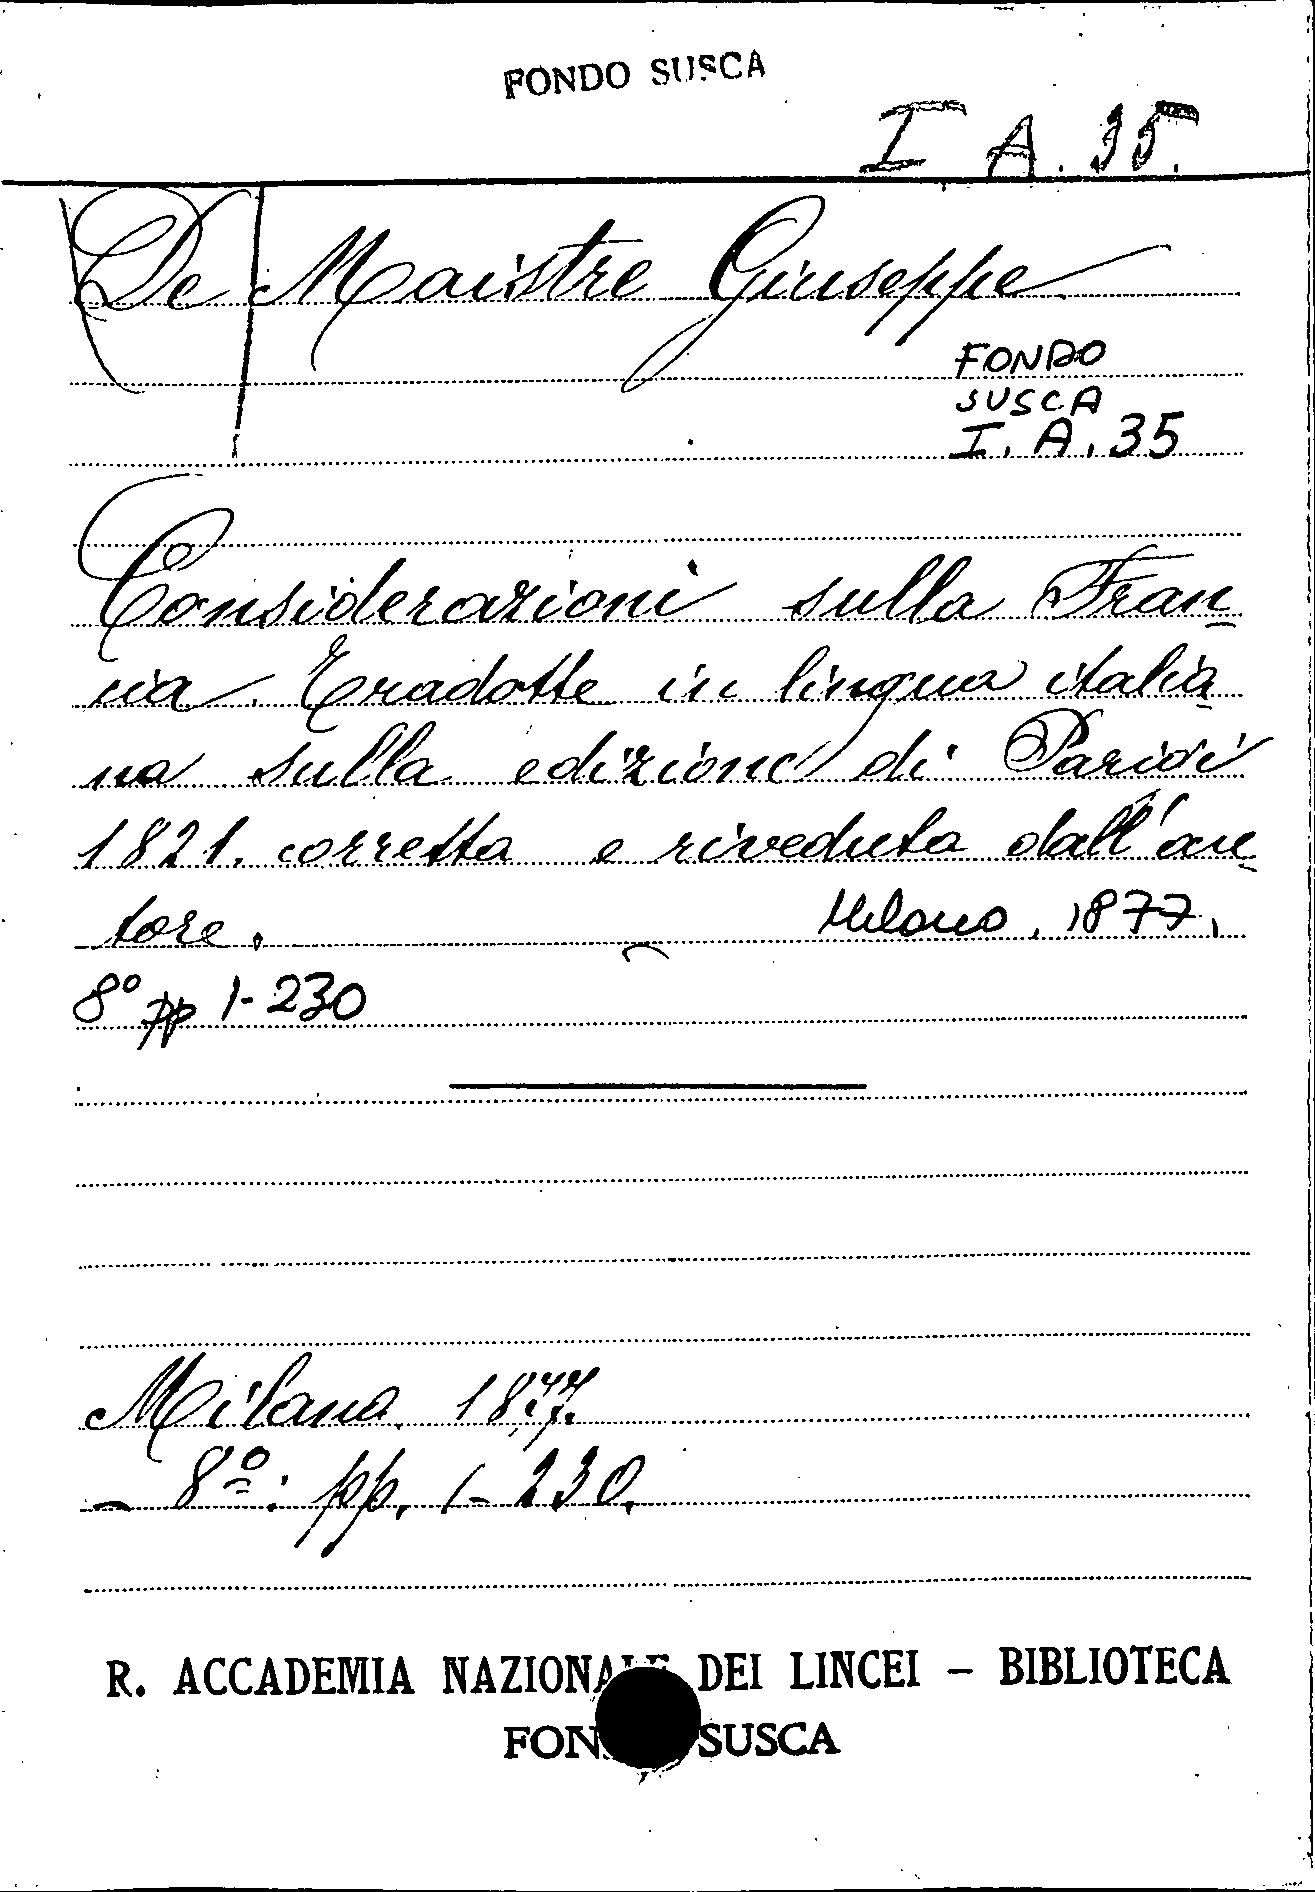 FONDO SUSCA
I A. 35.
De Maistre Giuseppe
FONDO
SUSCA
I. A. 35
Considerazioni sulla Fran
cia. Tradotte in lingua italia
na sulla edizione di Parigi
1821. corretta e riveduta dall'au
tore. Milano, 1877.
8º pp 1-230
Milano. 1877.
- 8º: pp. 1-230.
R. ACCADEMIA NAZIONALE DEI LINCEI – BIBLIOTECA
FON SUSCA